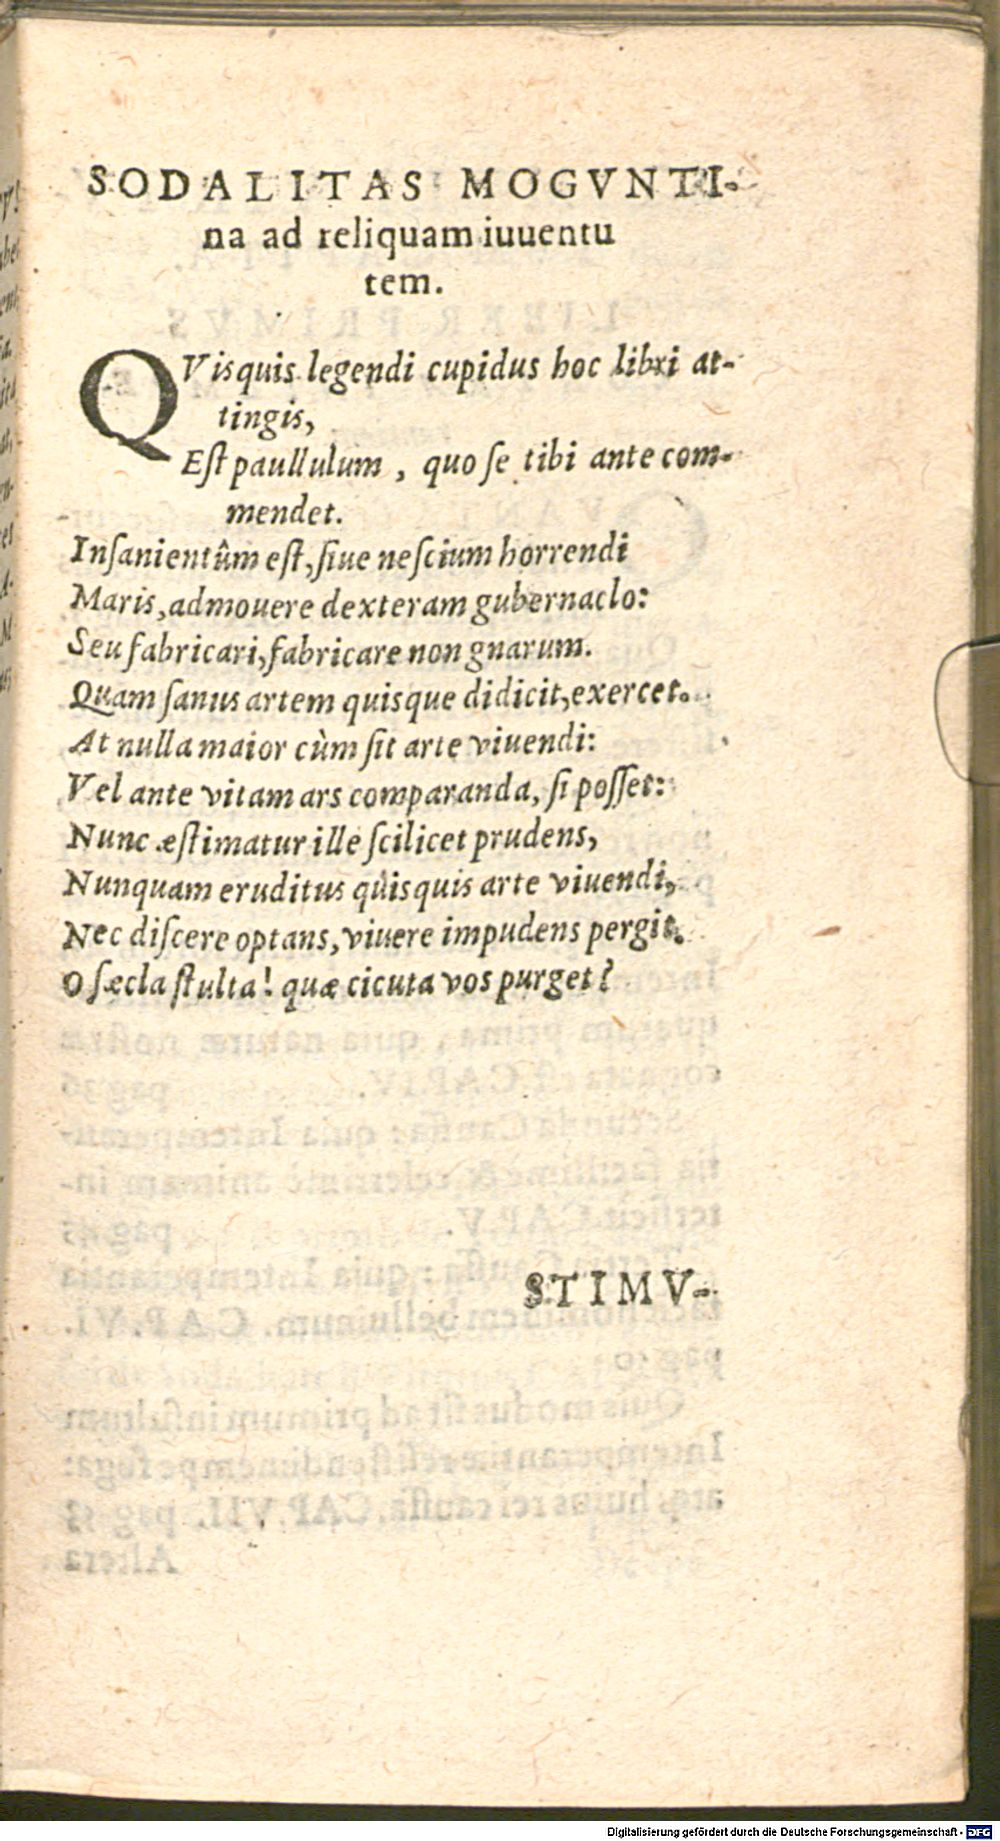 SODALITAS MOGVNTI-
na ad reliquam iuuentu
tem.
QVisquis legendi cupidus hoc libri at-
tingis,
Eſt paullulum, quo ſe tibi ante com-
mendet.
Inſanientûm eſt, ſiue neſcium horrendi
Maris, admouere dexteram gubernaclo:
Seu fabricari, fabricare non gnarum.
Quam ſanus artem quisque didicit, exercet.
At nulla maior cùm ſit arte viuendi:
Vel ante vitam ars comparanda, ſi poſſet:
Nunc æſtimatur ille ſcilicet prudens,
Nunquam eruditus quisquis arte viuendi,
Nec diſcere optans, viuere impudens pergit.
O ſæcla ſtulta! quæ cicuta vos purget?
STIMV-
Digitalisierung gefördert durch die Deutsche Forschungsgemeinschaft - DFG